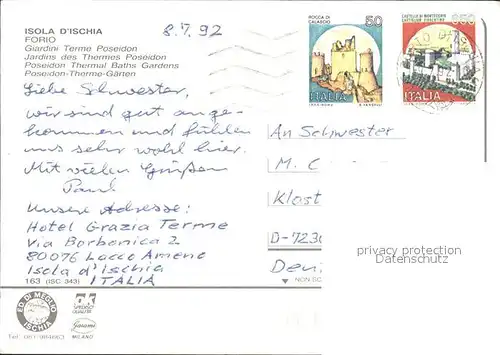 ISOLA D'ISCHIA
FORIO
Giardini Terme Poseidon
Jardins des Thermes Poseidon
Poseidon Thermal Baths Gardens
Poseidon-Therme-Gärten
8.7.92
ROCCA DI
CALASCIO
50
ITALIA
CASTELLO DI MONTECCHIO
CASTIGLION FIORENTINO
ITALIA
Liebe Schwester,
wir sind gut ange-
kommen und fühlen
uns sehr wohl hier.
Mit vielen Grüßen
Paul.
Unsere Adresse:
Hotel Grazia Terme
Via Borbonica 2
80076 Lacco Ameno
Isola d'Ischia
ITALIA
An Schwester
M. C
Klost
D-7230
Deu
privacy protection
Datenschutz
163 (ISC. 343)
NON SC
ED. DI MEGLIO
ISCHIA
Tel. 081-984663
MILANO